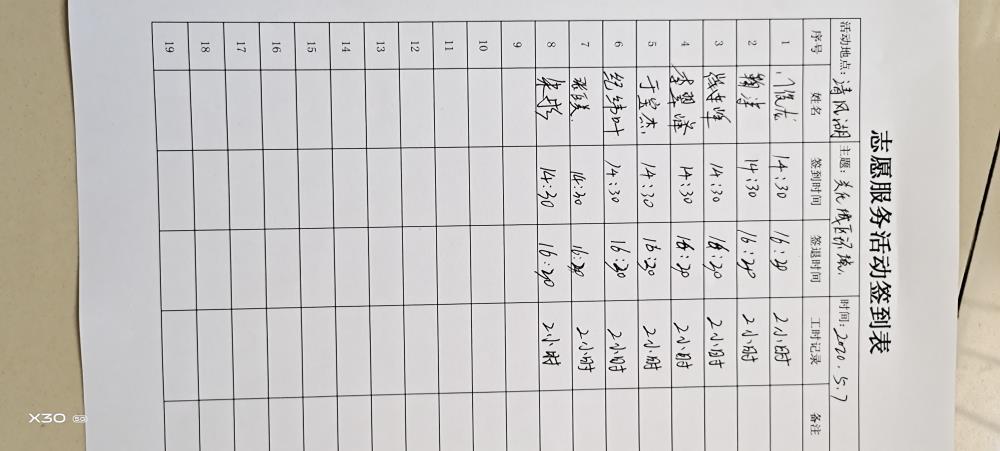 志愿服务活动签到表
活动地点：清风湖 主题：美化城区环境. 时间：2020.5.7
序号 姓名 签到时间 签退时间 工时记录 备注
1 门俊龙 14:30 16:20 2小时
2 14:30 16:20 2小时
3 14:30 16:20 2小时
4 李翠峰 14:30 16:20 2小时
5 于宝杰 14:30 16:20 2小时
6 纪纬叶 14:30 16:20 2小时
7 14:30 16:20 2小时
8 朱彤 14:30 16:20 2小时
9
10
11
12
13
14
15
16
17
18
19
X30